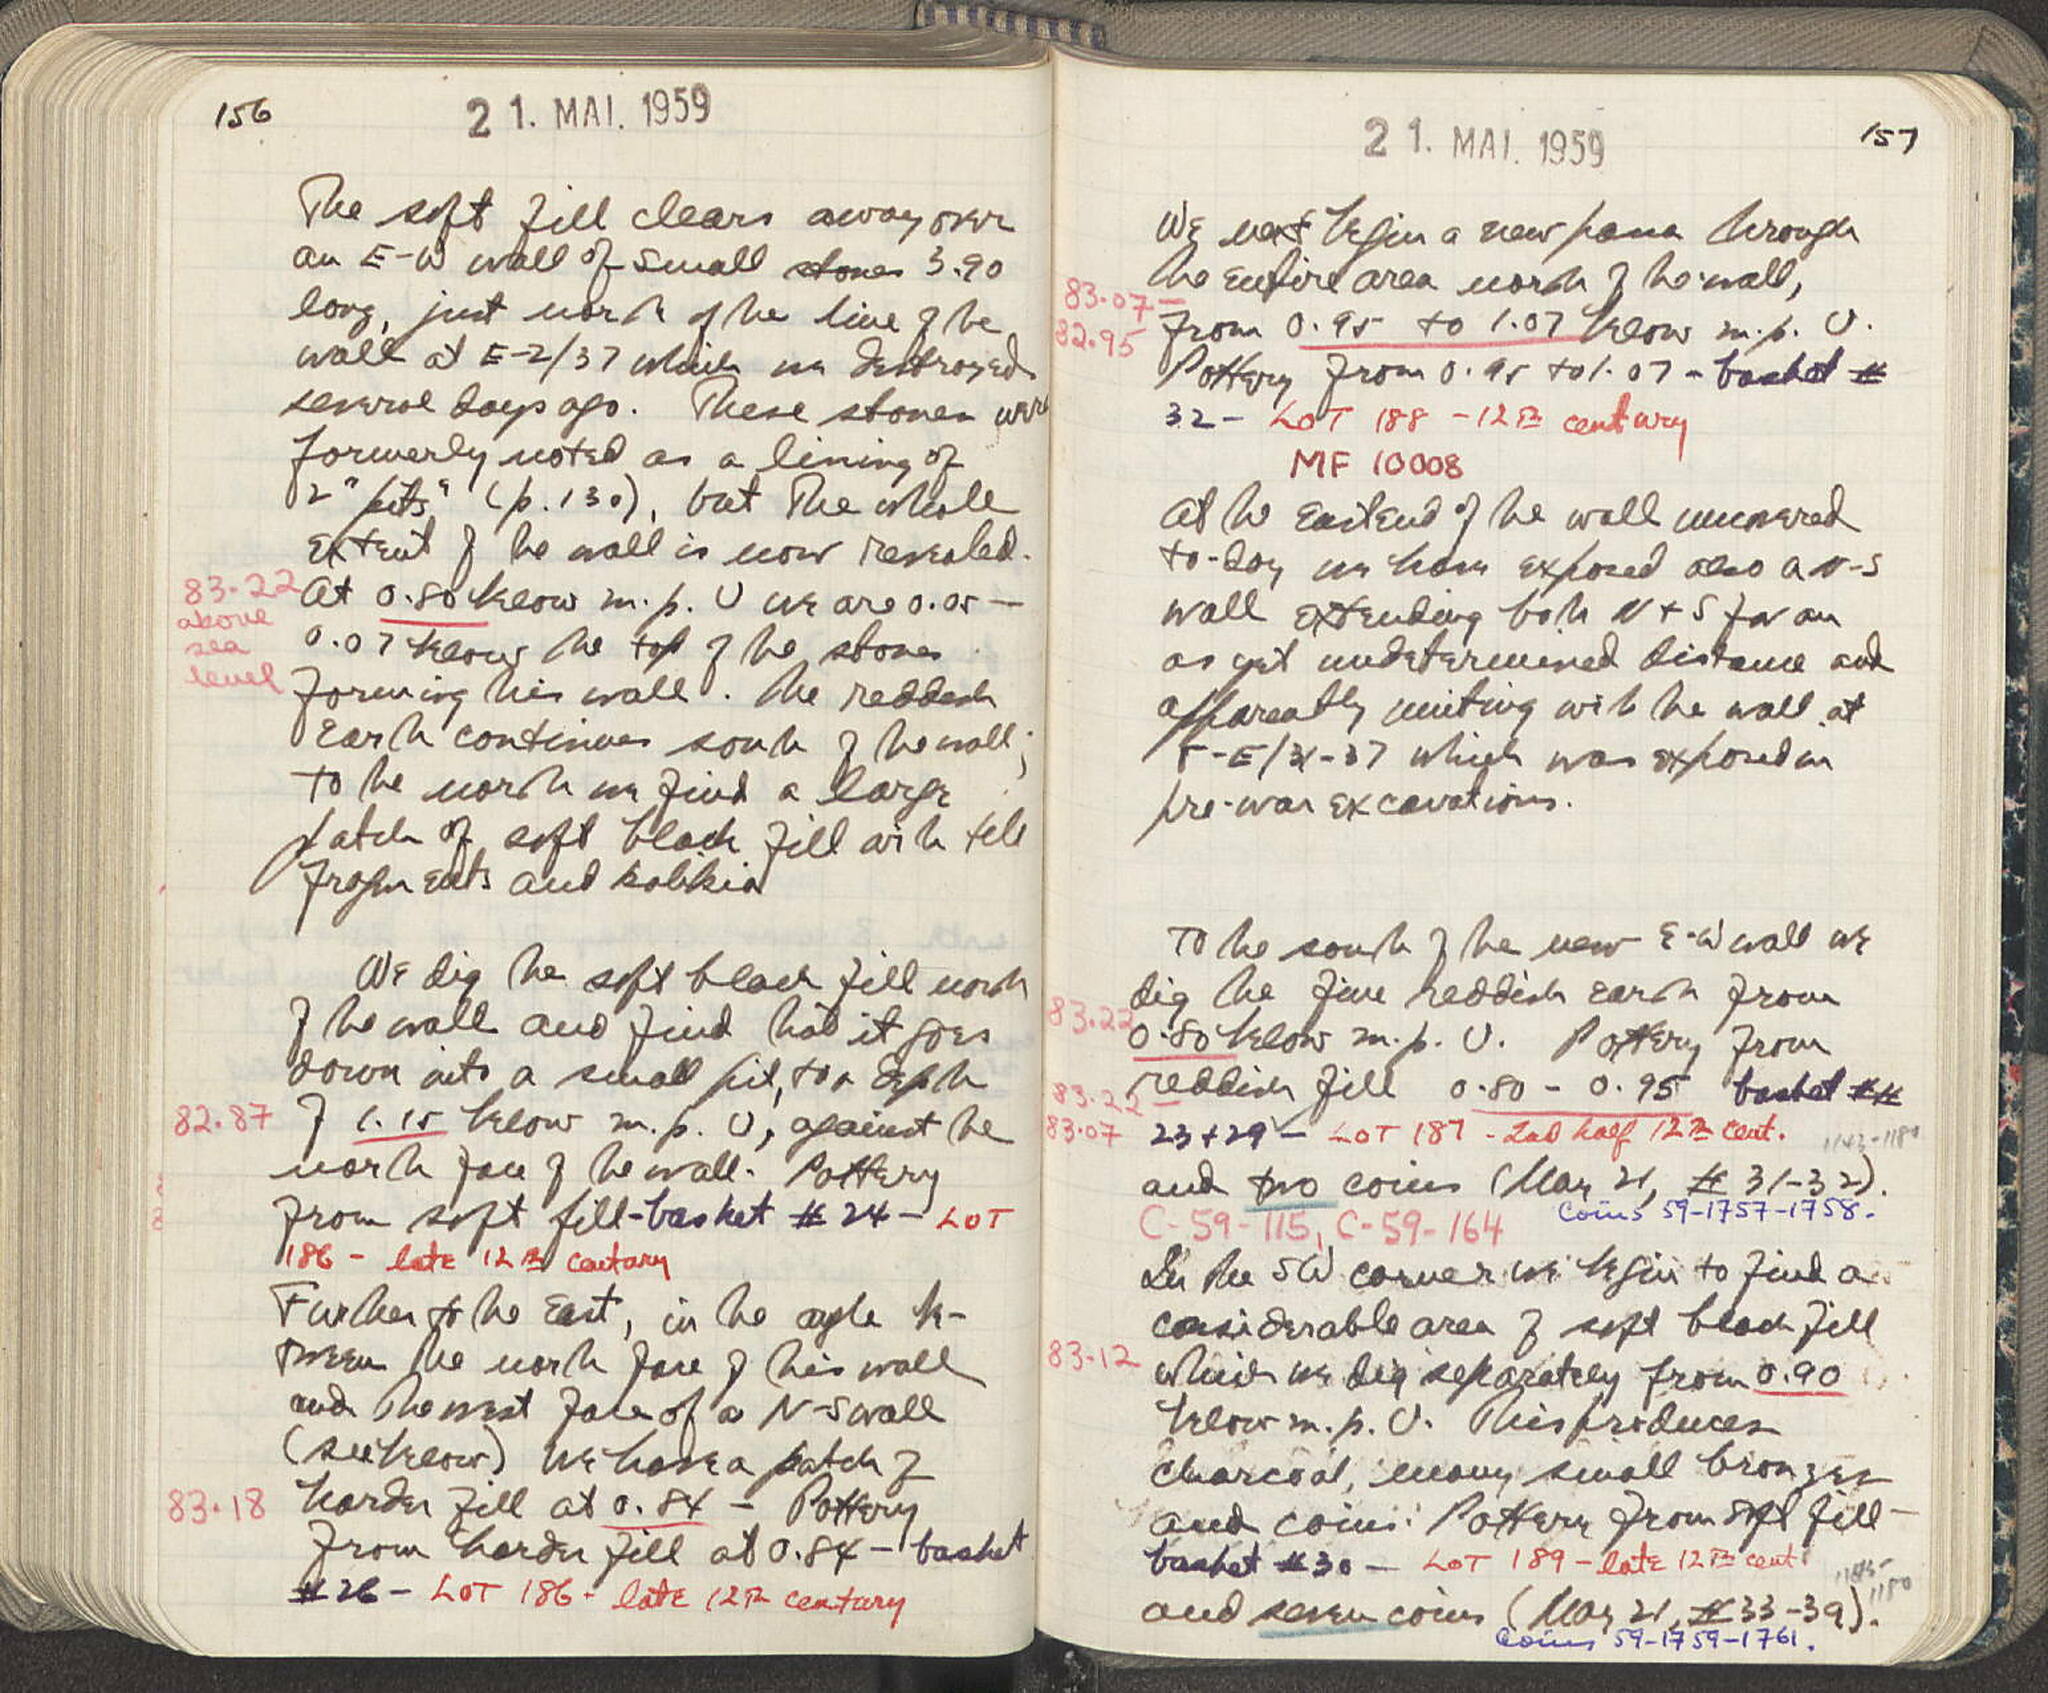 156
21. MAI. 1959
The soft fill clears away over
an E-W wall of small stones 3.90
long, just north of the line of the
wall at E-2/37 which we destroyed
several days ago. These stones were
formerly noted as a lining of
2 "pits" (p. 130), but the whole
extent of the wall is now revealed.
83.22
above
sea
level
At 0.80 below m.p. U we are 0.05 —
0.07 below the top of the stones
forming this wall. The reddish
earth continues south of the wall;
to the north we find a large
patch of soft black fill with tile
fragments and kalikia
We dig the soft black fill north
of the wall and find that it goes
down into a small pit, to a depth
82.87
of 1.15 below m.p. U, against the
north face of the wall. Pottery
from soft fill - basket # 24 - LOT
186 - late 12th century
Further to the East, in the angle be-
tween the north face of this wall
and the west face of a N-S wall
(see below) we have a patch of
83.18
harder fill at 0.84 - Pottery
from harder fill at 0.84 - basket
# 26 - LOT 186 - late 12th century
157
21. MAI. 1959
We next begin a new passa through
the entire area north of the wall,
83.07 -
82.95
from 0.95 to 1.07 below m.p. U.
Pottery from 0.95 to 1.07 - basket #
32 - LOT 188 - 12th century
MF 10008
At the East end of the wall uncovered
to-day we have exposed also a N-S
wall extending both N + S for an
as yet undetermined distance and
apparently uniting with the wall at
which was exposed in
pre-war excavations.
To the south of the new E-W wall we
dig the fine reddish earth from
83.22
0.80 below m.p. U. Pottery from
83.22 -
83.07
reddish fill 0.80 - 0.95 basket ##
23 + 29 - LOT 187 - 2nd half 12th cent. 1143-1180
and two coins (May 21, # 31-32).
C-59-115, C-59-164 Coins 59-1757-1758.
In the SW corner we begin to find a
considerable area of soft black fill
83.12
which we dig separately from 0.90
below m.p. U. This produces
charcoal, many small bronzes
and coins. Pottery from soft fill -
basket # 30 - LOT 189 - late 12th cent.
and seven coins (May 21, # 33-39).
Coins 59-1759-1761.